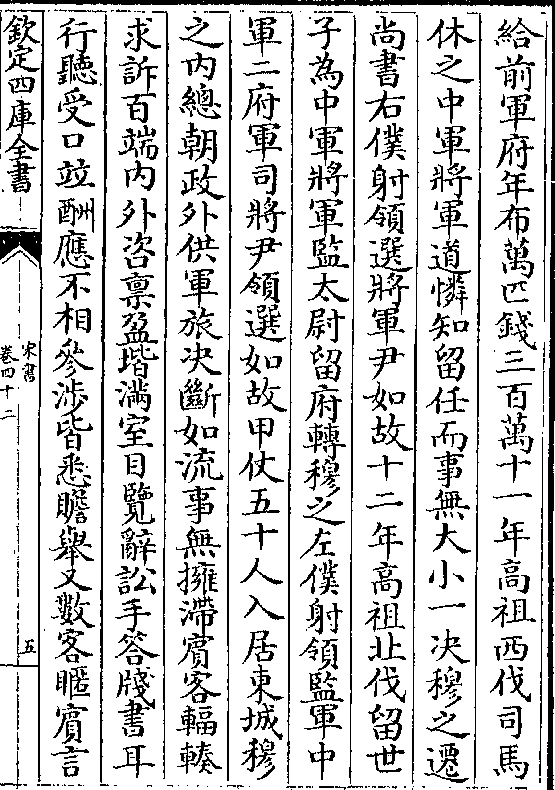 給前軍府年布萬匹錢三百萬十一年高祖西伐司馬
休之中軍將軍道憐知留任而事無大小一決穆之遷
尚書右僕射領選將軍尹如故十二年高祖北伐留世
子為中軍將軍監太尉留府轉穆之左僕射領監軍中
軍二府軍司將尹領選如故甲仗五十人入居東城穆
之内總朝政外供軍旅决斷如流事無擁滯賓客輻輳
求訴百端内外咨禀盈堦滿室目覽辭訟手答牋書耳
行聽受口竝酬應不相參涉皆悉贍舉又數客暱賓言
欽定四庫全書
宋書
卷四十二
五